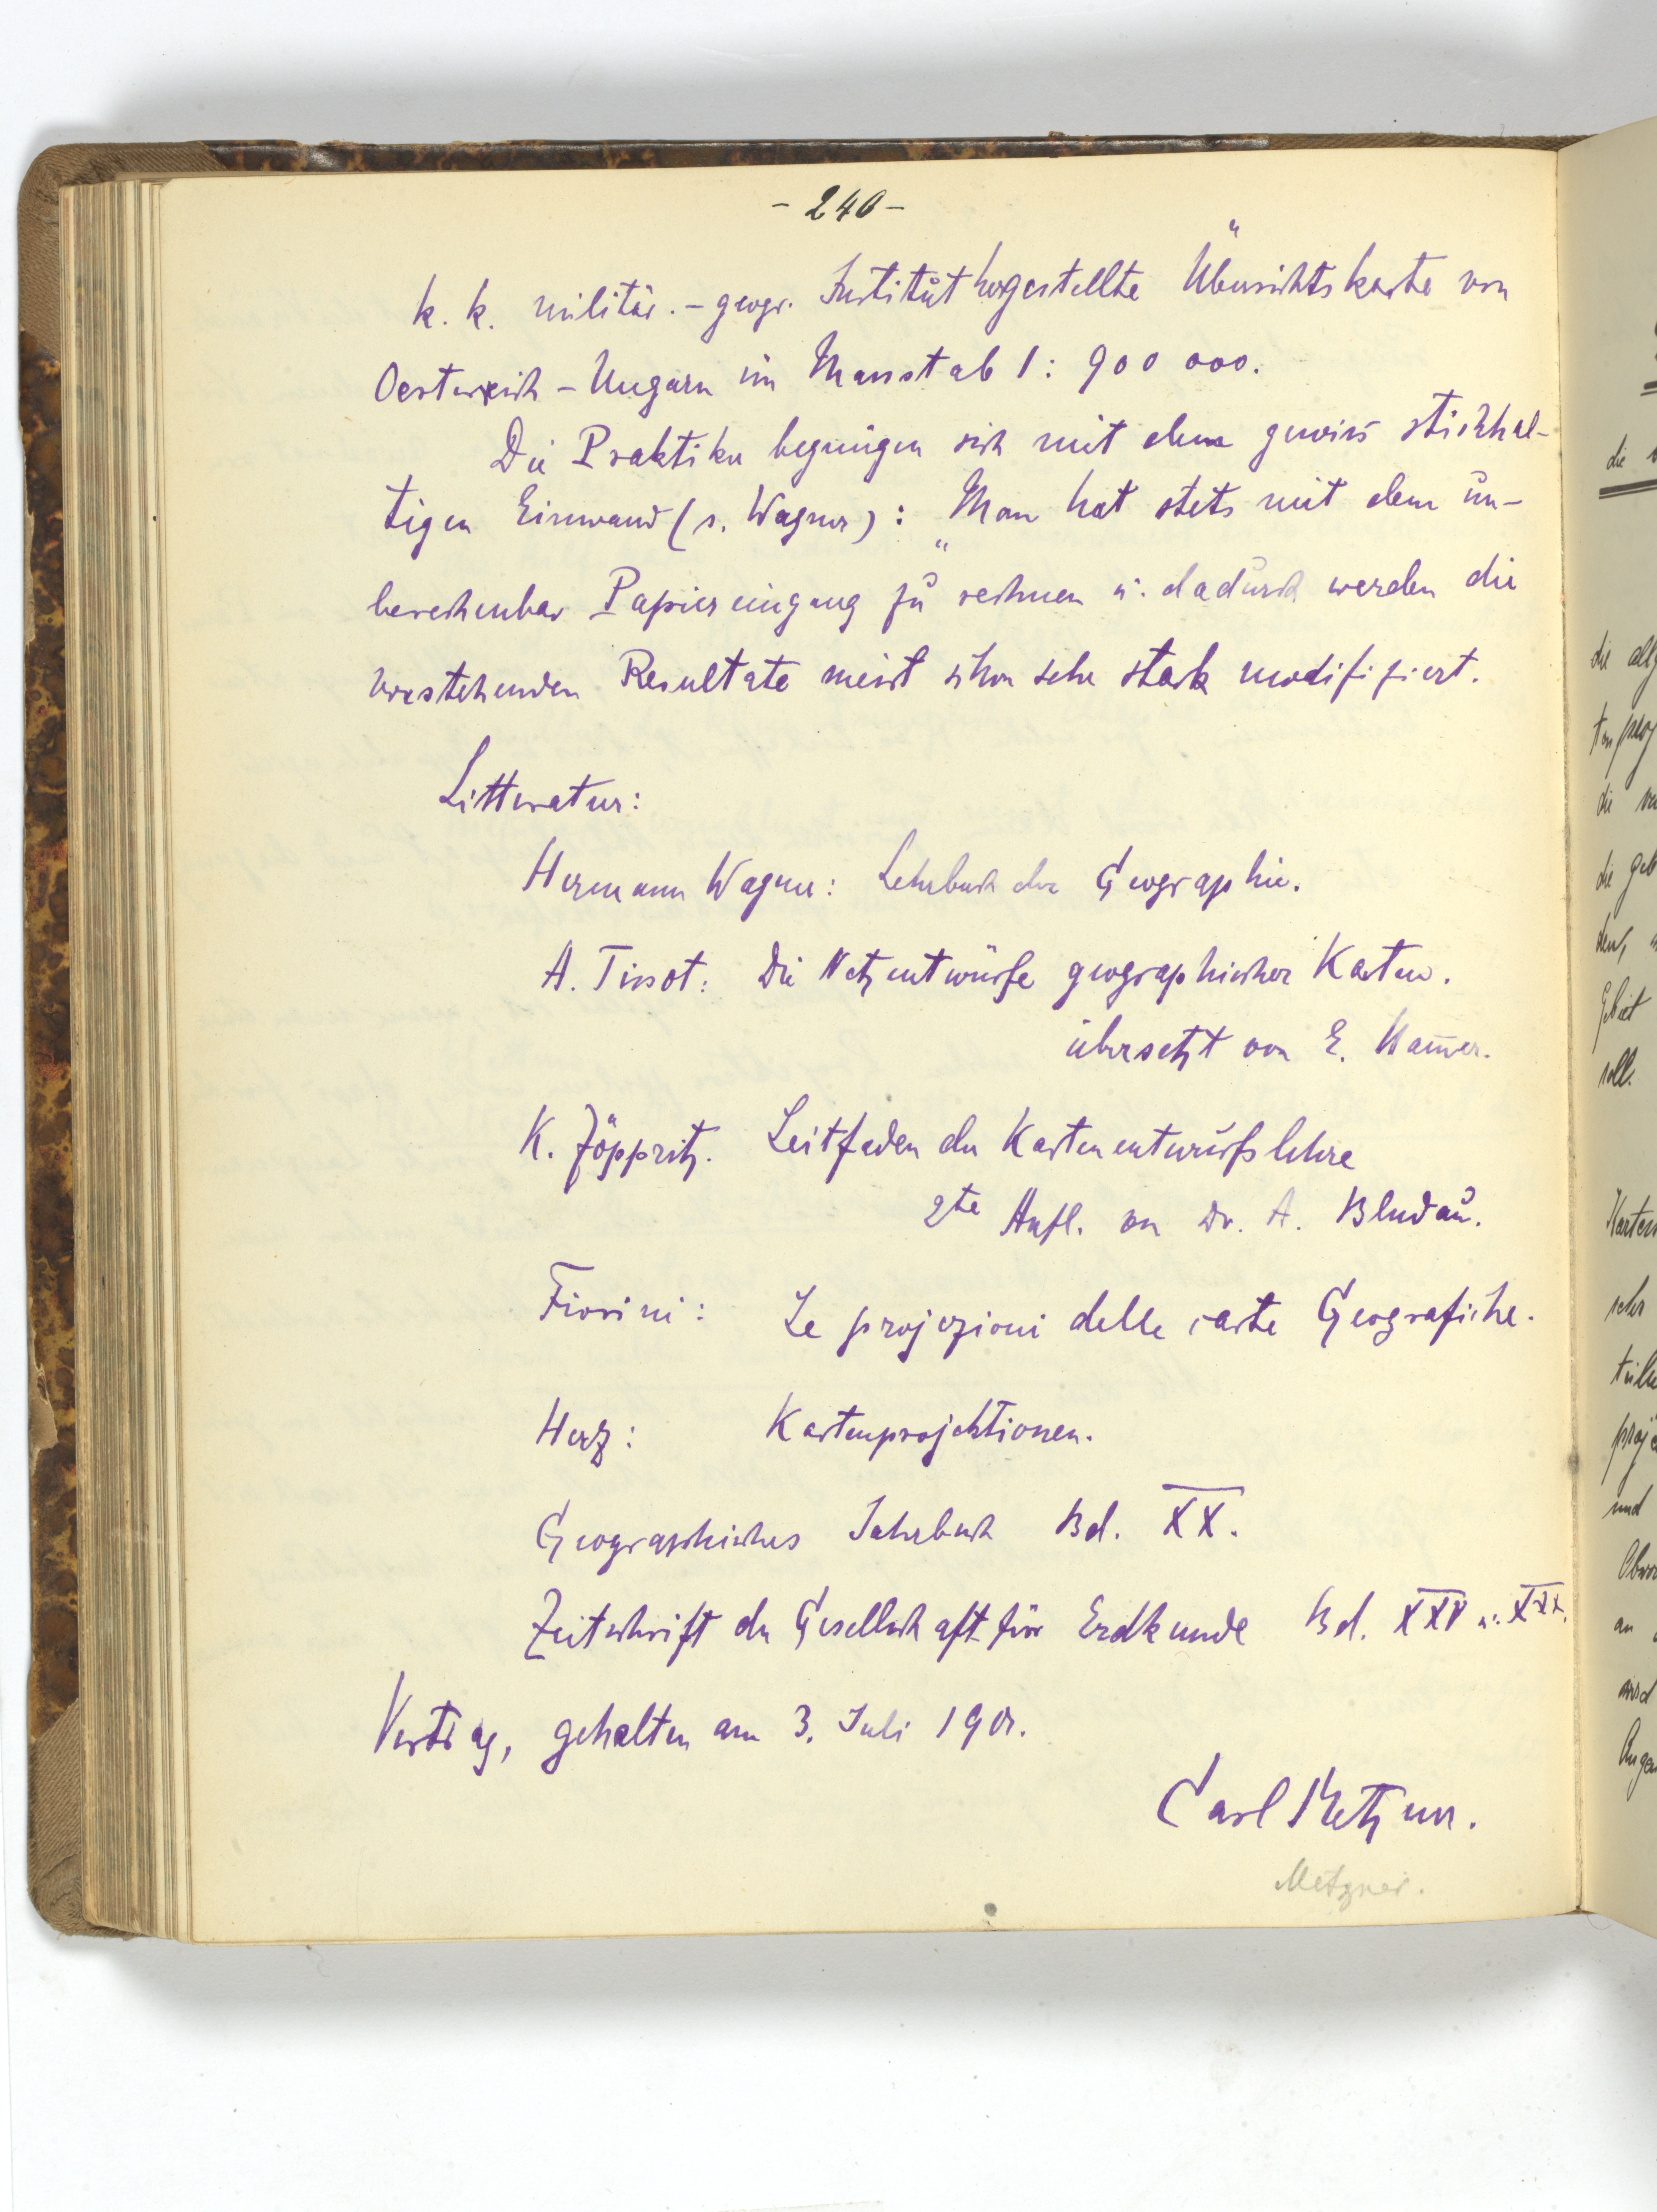 - 240 -
k. k. militär.-geogr. Institut hergestellte Übersichtskarte von
Oesterreich-Ungarn im Massstab 1: 900 000.
Die Praktiker begnügen sich mit dem gewiss stichhal-
tigen Einwand (s. Wagner): „Man hat stets mit dem un-
berechenbar Papiereingang zu rechnen u. dadurch werden die
vorstehenden Resultate meist schon sehr stark modifiziert.
Litteratur:
Hermann Wagner: Lehrbuch der Geographie.
A. Tissot: Die Netzentwürfe geographischer Karten.
übersetzt von E. Ham̅er.
K. Zöppritz. Leitfaden der Kartenentwurfslehre
2te Aufl. von Dr. A. Bludau.
Fiorini: Le projezioni delle carte Geografiche.
Herz: Kartenprojektionen.
Geographisches Jahrbuch Bd. XX.
Zeitschrift der Gesellschaft für Erdkunde Bd. XXV u. XXX.
Vortrag, gehalten am 3. Juli 1901.
Carl Metzner.
Metzner.
die
die allg
die
die geb
Gebiet
soll.
Karten
sehr
proje
und
an
wird